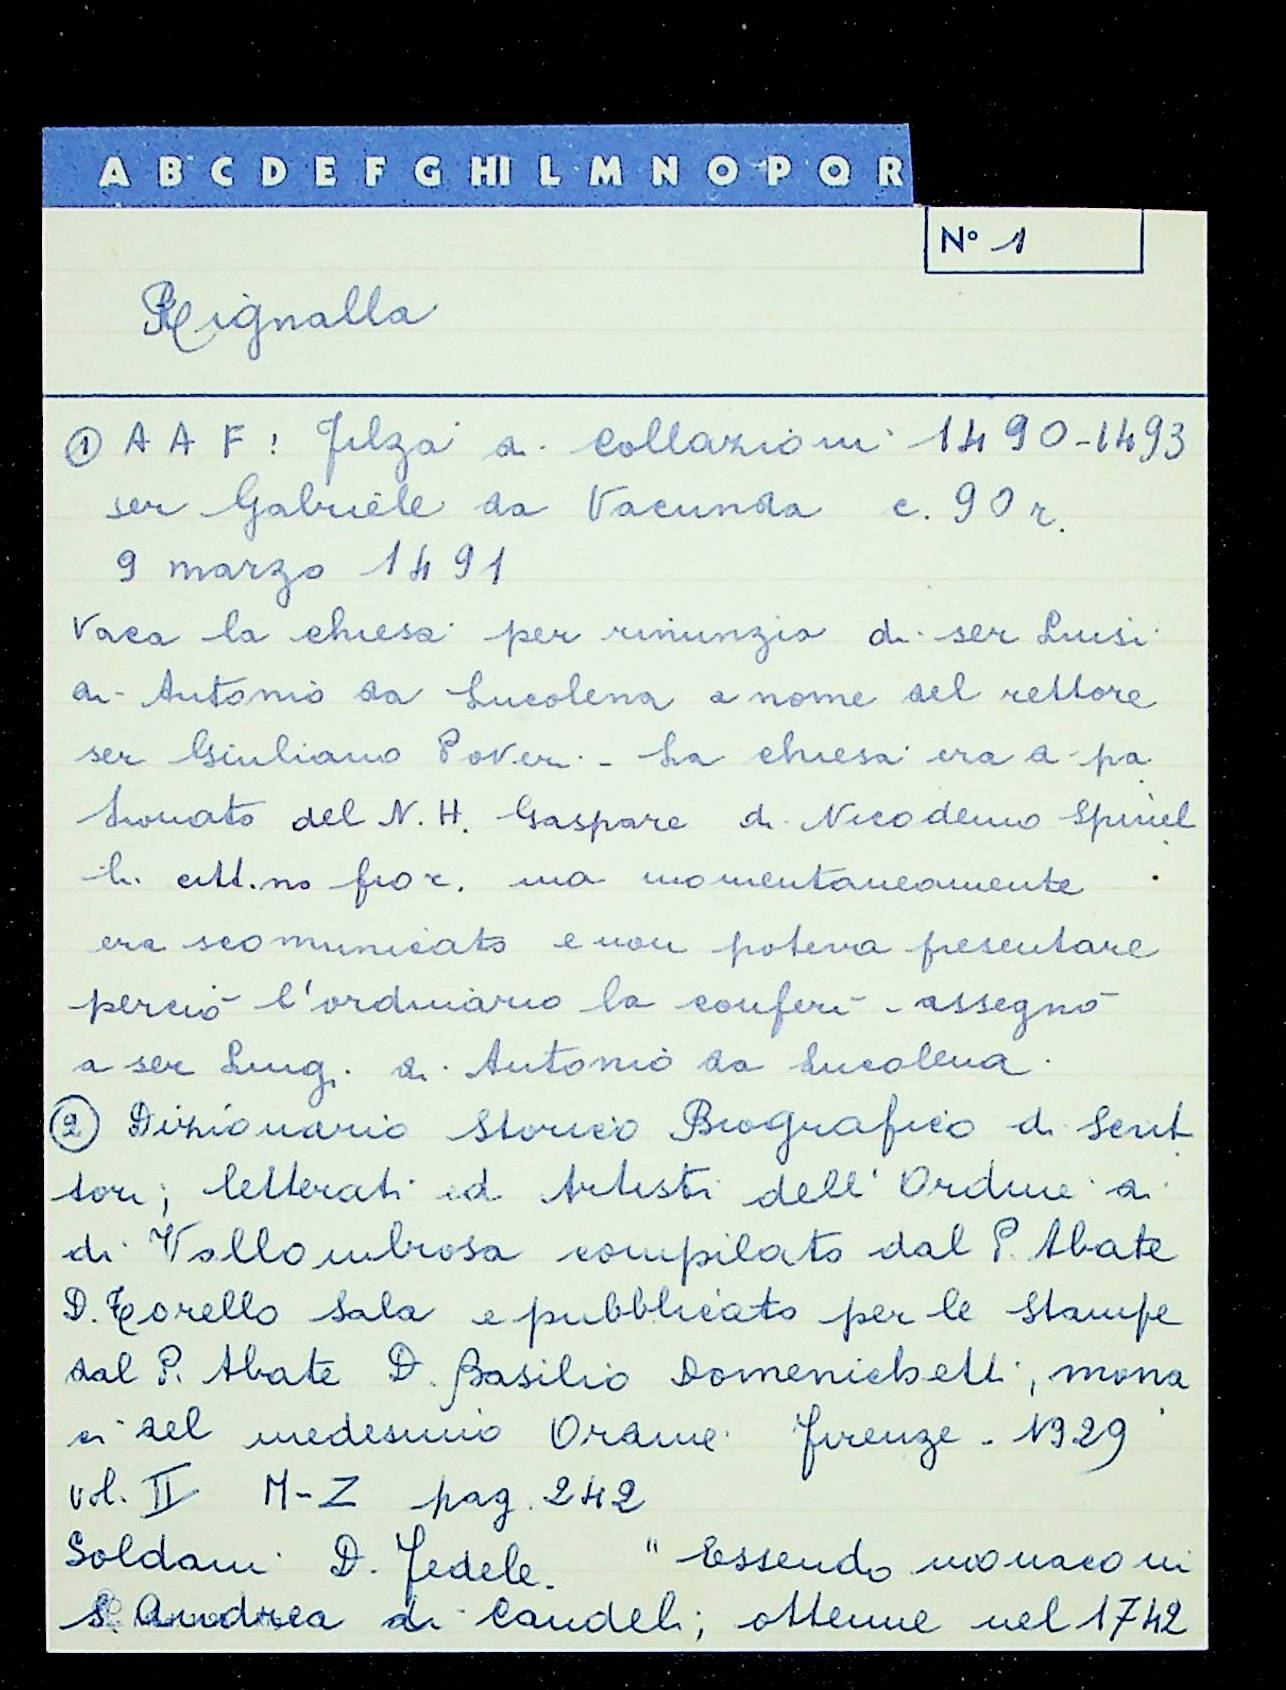 A B C D E F G HI L M N O P Q R
N° 1
Rignalla
① A A F: Filza di Collazioni 1490-1493
ser Gabriele da Vacunda c. 90 r.
9 marzo 1491
Vaca la chiesa per rinunzia di ser Luisi
di Antonio da Lucolena a nome del rettore
ser Giuliano Poveri - La chiesa era di pa
tronato del N. H. Gaspare di Nicodemo Spinel
li citt.no fior. ma momentaneamente
era scomunicato e non poteva presentare
perciò l'ordinario la conferì - assegnò
a ser Luigi di Antonio da Lucolena.
② Dizionario Storico Biografico di Scrit
tori, letterati ed Artisti dell'Ordine di
di Vallombrosa compilato dal P. Abate
D. Torello Sala e pubblicato per le stampe
dal P. Abate D. Basilio Domenichetti, mona
ci del medesimo Ordine. Firenze - 1929
vol. II M-Z pag. 242
Soldani D. Fedele. "Essendo monaco in
S. Andrea di Candeli, ottenne nel 1742